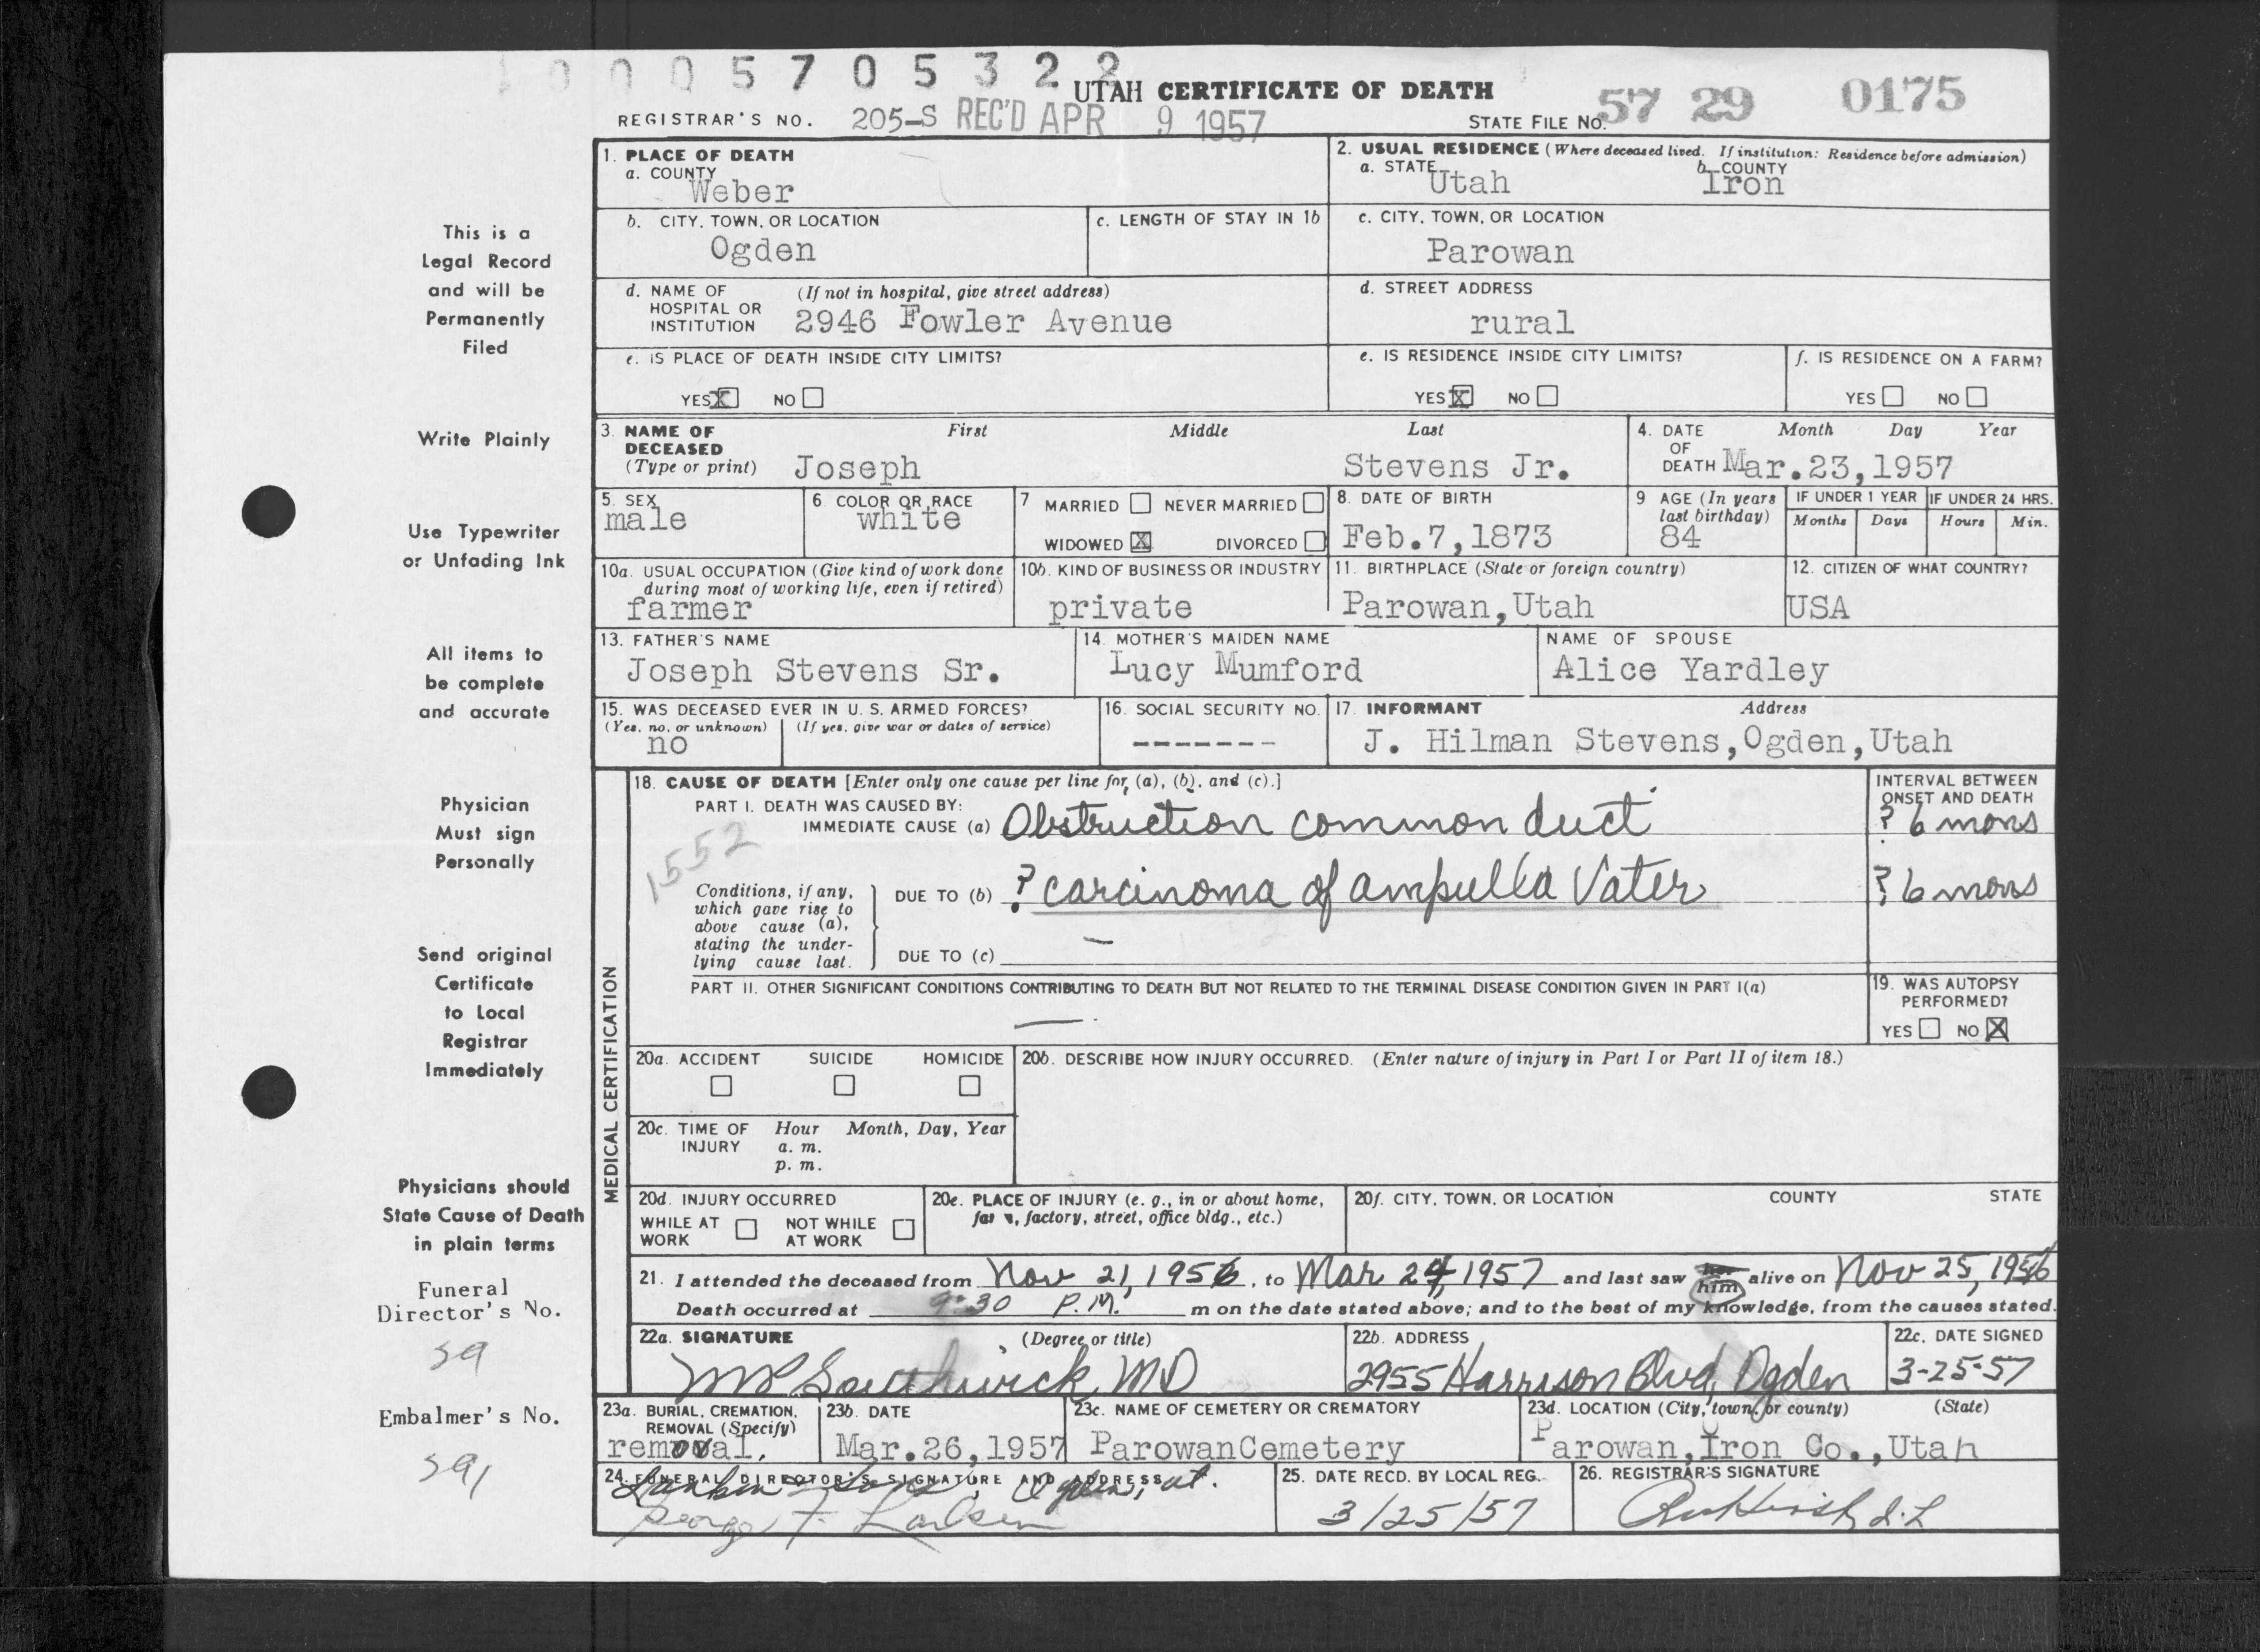 1 0 0 0 5 7 0 5 3 2 2
UTAH CERTIFICATE OF DEATH
REGISTRAR'S NO. 205-S REC'D APR 9 1957
STATE FILE NO. 57 29 0175
1. PLACE OF DEATH
a. COUNTY
Weber
2. USUAL RESIDENCE (Where deceased lived. If institution: Residence before admission)
a. STATE Utah
b. COUNTY Iron
b. CITY, TOWN, OR LOCATION
Ogden
c. LENGTH OF STAY IN 1b
c. CITY, TOWN, OR LOCATION
Parowan
d. NAME OF HOSPITAL OR INSTITUTION (If not in hospital, give street address)
2946 Fowler Avenue
d. STREET ADDRESS
rural
e. IS PLACE OF DEATH INSIDE CITY LIMITS?
YES X NO
e. IS RESIDENCE INSIDE CITY LIMITS?
YES X NO
f. IS RESIDENCE ON A FARM?
YES NO
3. NAME OF DECEASED (Type or print)
First Middle Last
Joseph Stevens Jr.
4. DATE OF DEATH Month Day Year
Mar.23,1957
5. SEX
male
6. COLOR OR RACE
white
7 MARRIED NEVER MARRIED
WIDOWED X DIVORCED
8. DATE OF BIRTH
Feb.7,1873
9 AGE (In years last birthday)
84
IF UNDER 1 YEAR IF UNDER 24 HRS.
Months Days Hours Min.
10a. USUAL OCCUPATION (Give kind of work done during most of working life, even if retired)
farmer
10b. KIND OF BUSINESS OR INDUSTRY
private
11. BIRTHPLACE (State or foreign country)
Parowan,Utah
12. CITIZEN OF WHAT COUNTRY?
USA
13. FATHER'S NAME
Joseph Stevens Sr.
14. MOTHER'S MAIDEN NAME
Lucy Mumford
NAME OF SPOUSE
Alice Yardley
15. WAS DECEASED EVER IN U. S. ARMED FORCES?
(Yes, no, or unknown) (If yes, give war or dates of service)
no
16. SOCIAL SECURITY NO.
-------
17. INFORMANT Address
J. Hilman Stevens,Ogden,Utah
MEDICAL CERTIFICATION
18. CAUSE OF DEATH [Enter only one cause per line for (a), (b), and (c).]
PART I. DEATH WAS CAUSED BY:
IMMEDIATE CAUSE (a) Obstruction common duct
INTERVAL BETWEEN ONSET AND DEATH
? 6 mons
1552
Conditions, if any, which gave rise to above cause (a), stating the underlying cause last.
DUE TO (b) ? carcinoma of ampulla Vater
? 6 mons
DUE TO (c) —
PART II. OTHER SIGNIFICANT CONDITIONS CONTRIBUTING TO DEATH BUT NOT RELATED TO THE TERMINAL DISEASE CONDITION GIVEN IN PART I(a)
—
19. WAS AUTOPSY PERFORMED?
YES NO X
20a. ACCIDENT SUICIDE HOMICIDE
20b. DESCRIBE HOW INJURY OCCURRED. (Enter nature of injury in Part I or Part II of item 18.)
20c. TIME OF INJURY Hour Month, Day, Year
a. m.
p. m.
20d. INJURY OCCURRED
WHILE AT WORK NOT WHILE AT WORK
20e. PLACE OF INJURY (e. g., in or about home, farm, factory, street, office bldg., etc.)
20f. CITY, TOWN, OR LOCATION COUNTY STATE
21. I attended the deceased from Nov 21, 1956, to Mar 24, 1957 and last saw him alive on Nov 25, 1956
Death occurred at 9:30 P.M. m on the date stated above; and to the best of my knowledge, from the causes stated.
22a. SIGNATURE (Degree or title)
Southwick, MD
22b. ADDRESS
2955 Harrison Blvd, Ogden
22c. DATE SIGNED
3-25-57
23a. BURIAL, CREMATION, REMOVAL (Specify)
removal.
23b. DATE
Mar.26,1957
23c. NAME OF CEMETERY OR CREMATORY
ParowanCemetery
23d. LOCATION (City, town, or county) (State)
Parowan,Iron Co.,Utah
24. FUNERAL DIRECTOR'S SIGNATURE AND ADDRESS
Larkin & Sons, Ogden, ut.
George F. Larkin
25. DATE RECD. BY LOCAL REG.
3/25/57
26. REGISTRAR'S SIGNATURE
This is a
Legal Record
and will be
Permanently
Filed
Write Plainly
Use Typewriter
or Unfading Ink
All items to
be complete
and accurate
Physician
Must sign
Personally
Send original
Certificate
to Local
Registrar
Immediately
Physicians should
State Cause of Death
in plain terms
Funeral
Director's No.
59
Embalmer's No.
391